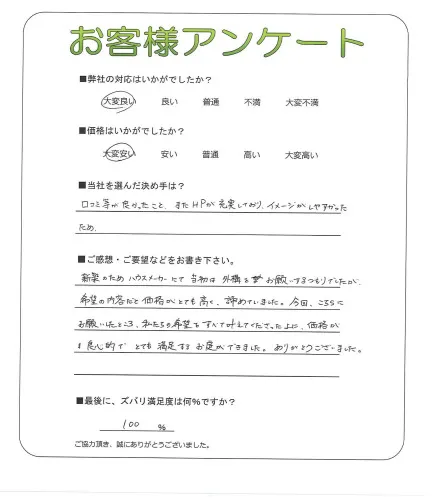 お客様アンケート
■弊社の対応はいかがでしたか？
大変良い 良い 普通 不満 大変不満
■価格はいかがでしたか？
大変安い 安い 普通 高い 大変高い
■当社を選んだ決め手は？
口コミ等が良かったこと、またHPが充実しており、イメージがしやすかった
ため。
■ご感想・ご要望などをお書き下さい。
新築のためハウスメーカーにて当初は外構をお願いするつもりでしたが、
希望の内容だと価格がとても高く、諦めていました。今回、こちらに
お願いしたところ、私たちの希望をすべて叶えてくださった上に、価格が
良心的で とても満足するお庭ができました。ありがとうございました。
■最後に、ズバリ満足度は何％ですか？
100 %
ご協力頂き、誠にありがとうございました。